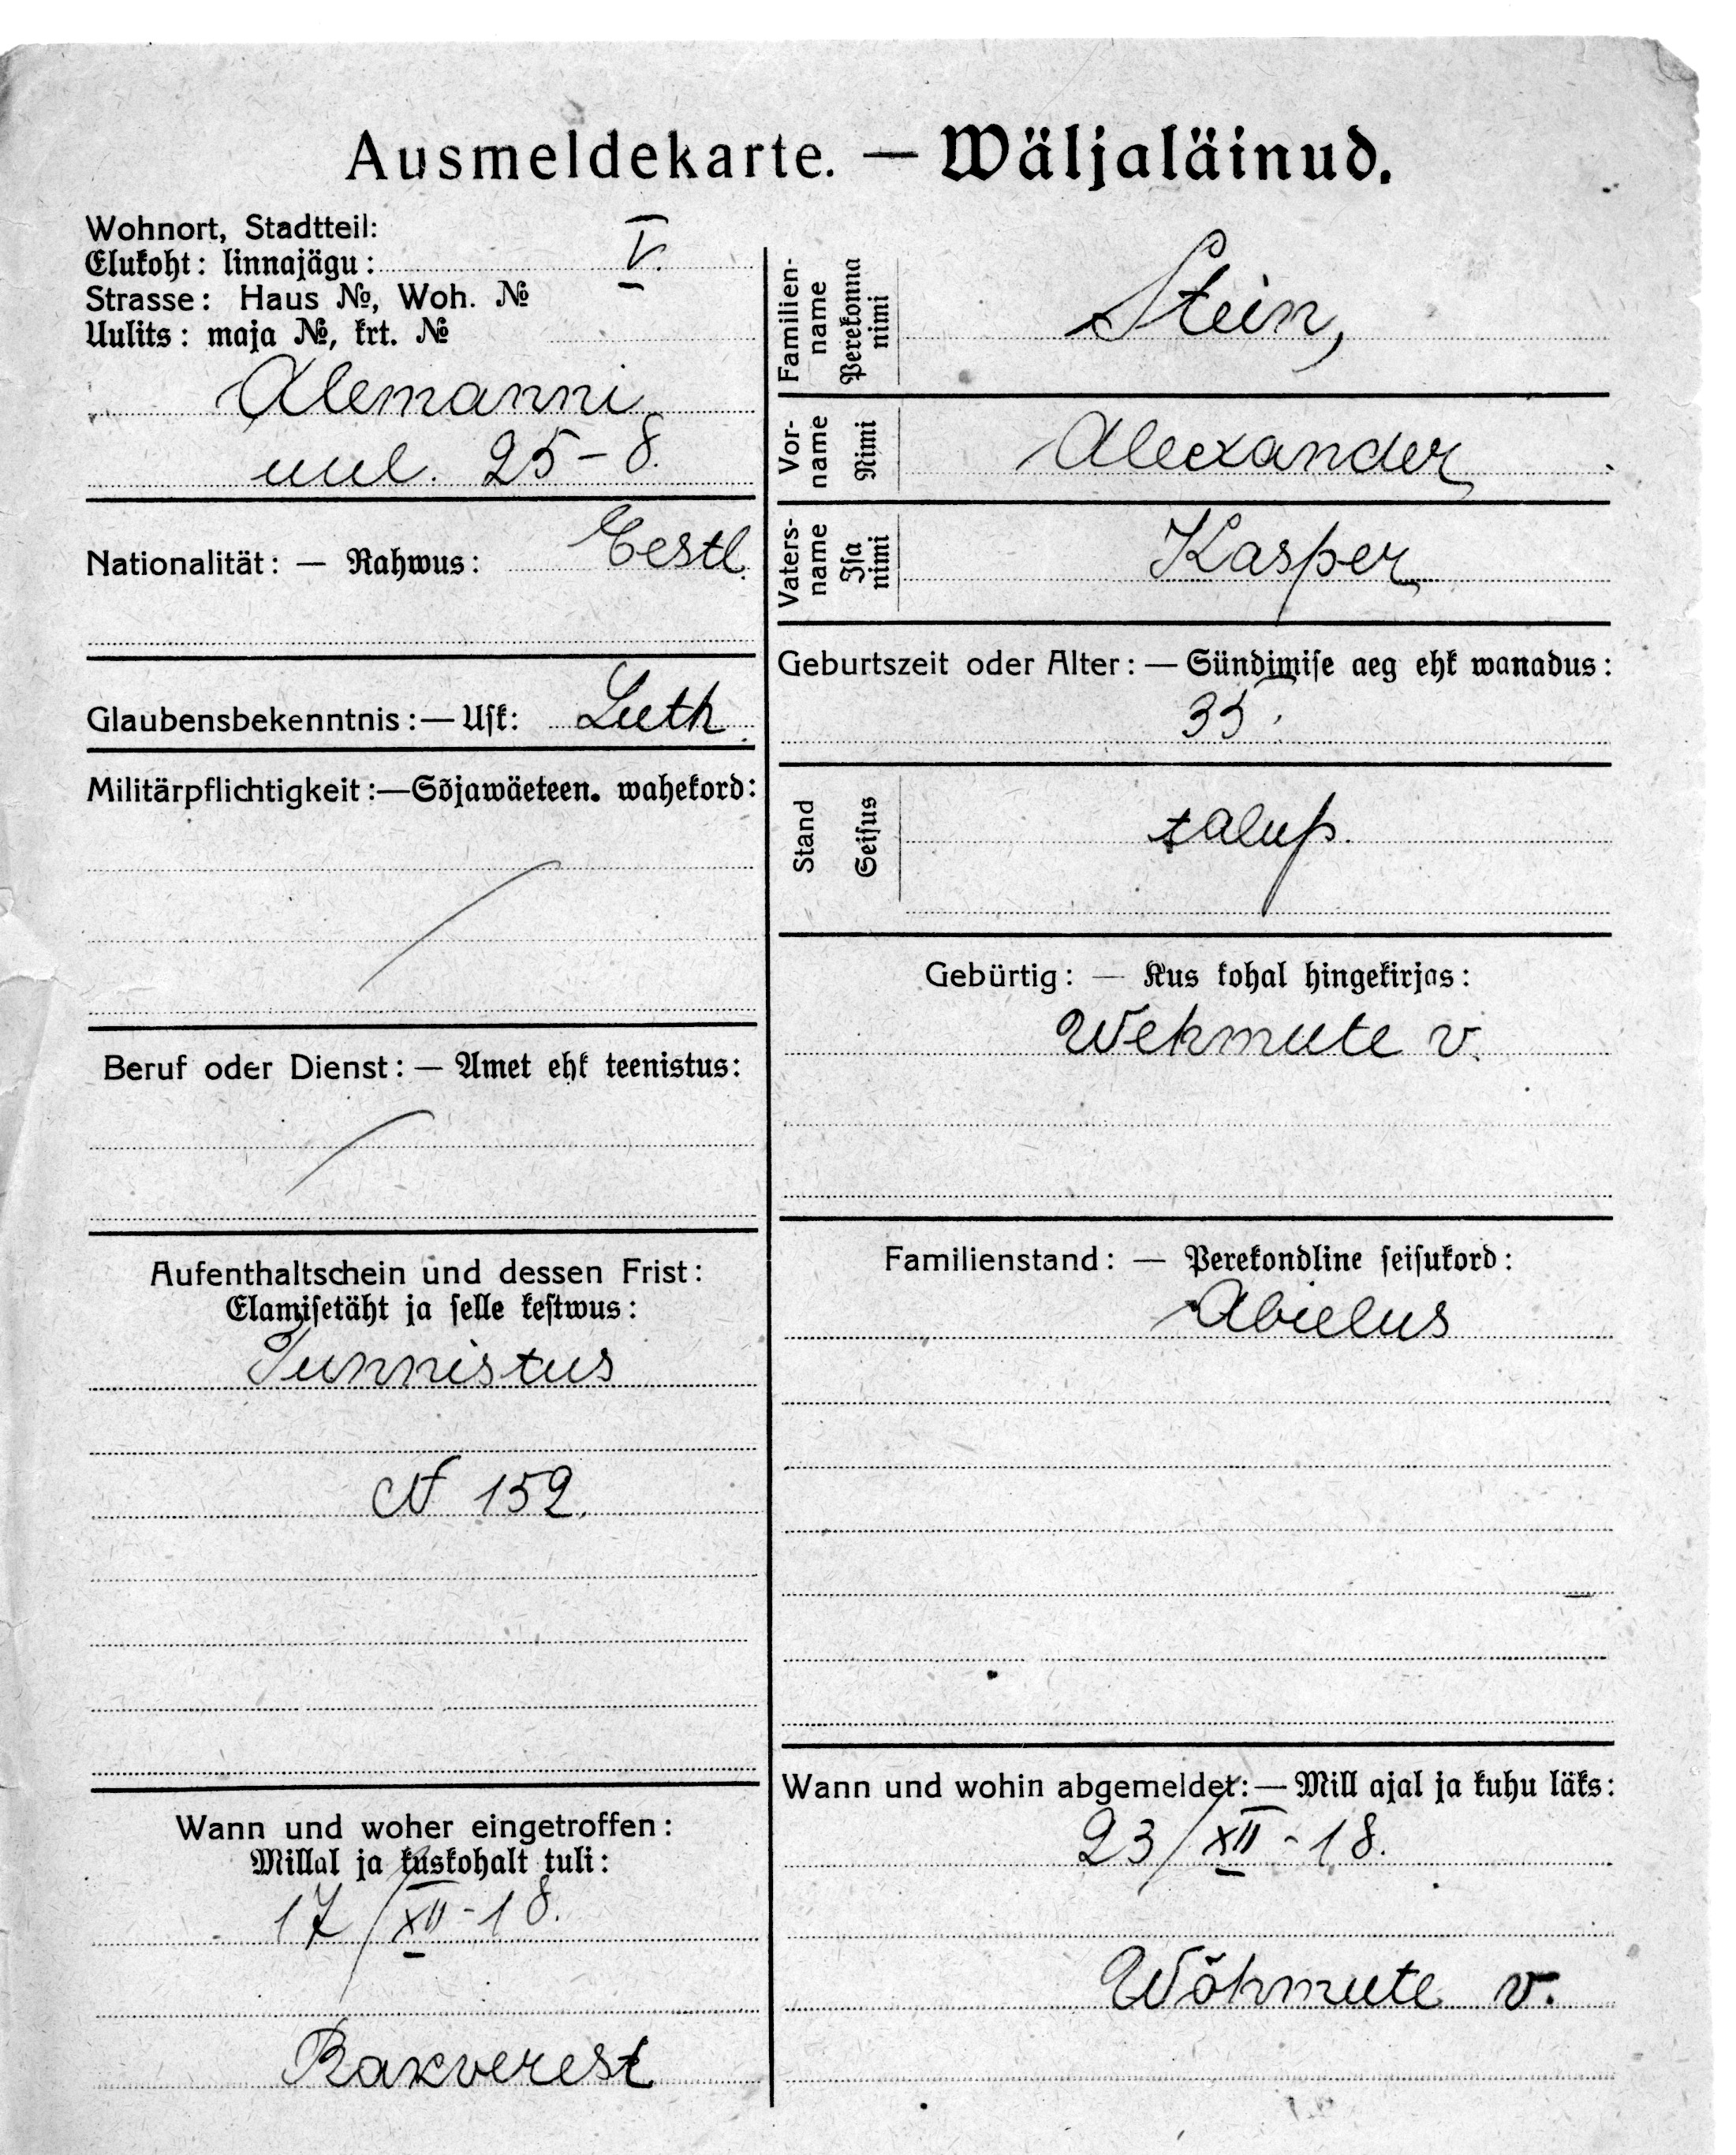 Ausmeldekarte. — Wäljaläinud.
Wohnort, Stadtteil:
Elukoht: linnajägu: V.
Strasse: Haus №, Woh. №
Uulits: maja №, krt. №
Alemanni
uul. 25-8.
Nationalität: — Rahwus: Eestl.
Glaubensbekenntnis:— Usk: Luth.
Militärpflichtigkeit:—Sõjawäeteen. wahekord:
Beruf oder Dienst: — Amet ehk teenistus:
Aufenthaltschein und dessen Frist:
Elamisetäht ja selle kestwus:
Tunnistus
N 152.
Wann und woher eingetroffen:
Millal ja kuskohalt tuli:
17/XII-18.
Rakverest
Familien-
name
Perekonna
nimi
Stein,
Vor-
name
Nimi
Alexander
Vaters-
name
Isa
nimi
Kasper
Geburtszeit oder Alter: — Sündimise aeg ehk wanadus:
35.
Stand
Seisus
talup.
Gebürtig: — Kus kohal hingekirjas:
Wehmute v.
Familienstand: — Perekondline seisukord:
Abielus
Wann und wohin abgemeldet:— Mill ajal ja kuhu läks:
23/XII-18.
Wõhmute v.